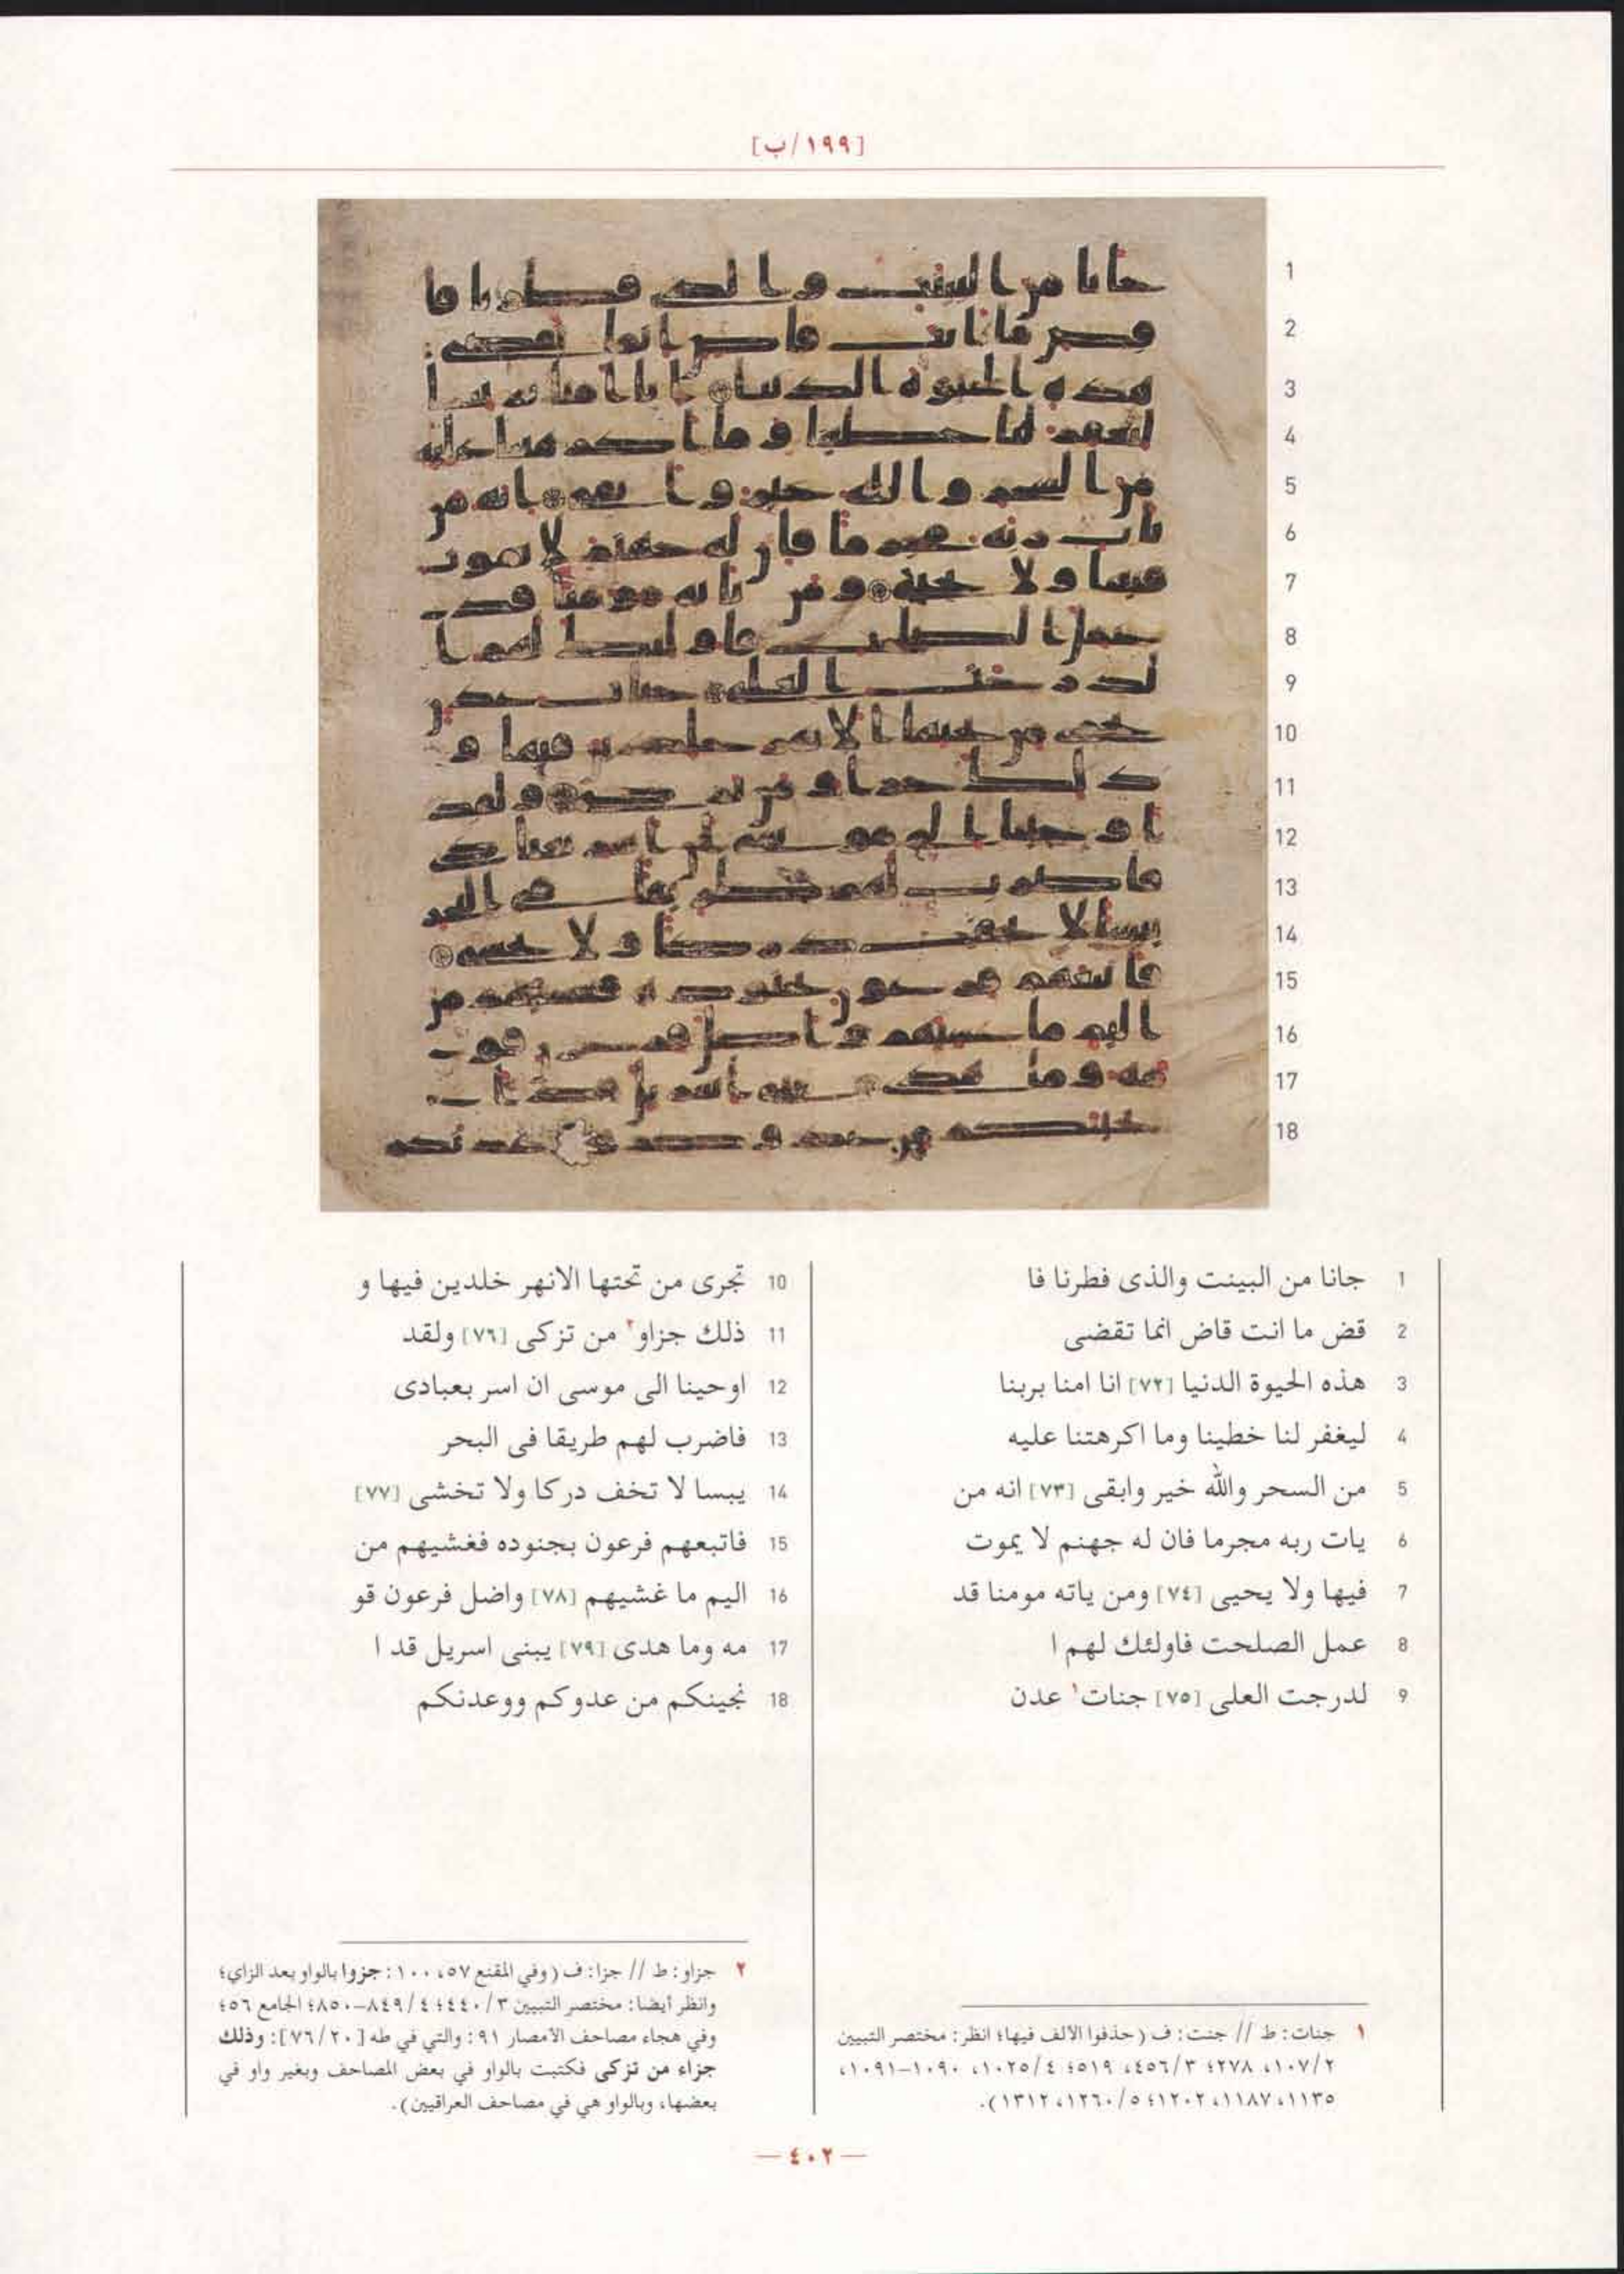 [١٩٩/ب]
1 جانا من البينت والذى فطرنا فا
2 قض ما انت قاض انما تقضى
3 هذه الحيوة الدنيا [٧٢] انا امنا بربنا
4 ليغفر لنا خطينا وما اكرهتنا عليه
5 من السحر والله خير وابقى [٧٣] انه من
6 يات ربه مجرما فان له جهنم لا يموت
7 فيها ولا يحيى [٧٤] ومن ياته مومنا قد
8 عمل الصلحت فاولئك لهم ا
9 لدرجت العلى [٧٥] جنات١ عدن
10 تجرى من تحتها الانهر خلدين فيها و
11 ذلك جزاو٢ من تزكى [٧٦] ولقد
12 اوحينا الى موسى ان اسر بعبادى
13 فاضرب لهم طريقا فى البحر
14 يبسا لا تخف دركا ولا تخشى [٧٧]
15 فاتبعهم فرعون بجنوده فغشيهم من
16 اليم ما غشيهم [٧٨] واضل فرعون قو
17 مه وما هدى [٧٩] يبنى اسريل قد ا
18 نجينكم من عدوكم ووعدنكم
١ جنات: ط // جنت: ف (حذفوا الالف فيها؛ انظر: مختصر التبيين
٢/١٠٧، ٢٧٨؛ ٣/٤٥٦، ٥١٩؛ ٤/١٠٢٥، ١٠٩٠-١٠٩١،
١١٣٥، ١١٨٧، ١٢٠٢؛ ٥/١٢٦٠، ١٣١٢).
٢ جزاو: ط // جزا: ف (وفي المقنع ٥٧، ١٠٠: جزوا بالواو بعد الزاي؛
وانظر أيضا: مختصر التبيين ٣/٤٤٠؛ ٤/٨٤٩-٨٥٠؛ الجامع ٥٦؛
وفي هجاء مصاحف الأمصار ٩١: والتي في طه [٧٦/٢٠]: وذلك
جزاء من تزكى فكتبت بالواو في بعض المصاحف وبغير واو في
بعضها، وبالواو هي في مصاحف العراقيين).
— ٤٠٢ —